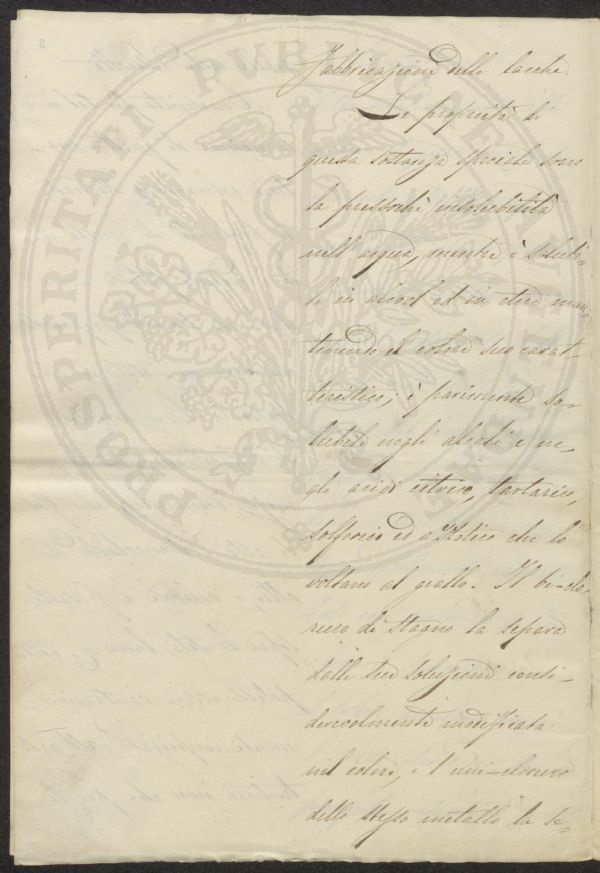 Fabbricazione delle lacche.
Le proprietà di
questa sostanza speciale sono
la pressochè insolubilità
nell'acqua, mentre è solubi-
le in alcool ed in etere man-
tenendo il colore suo carat-
teristico; è parimente so-
lubile negli alcali e ne-
gli acidi citrico, tartarico,
solforico ed azotico che lo
voltano al giallo. Il bi-clo-
ruro di stagno la separa
dalle sue soluzioni consi-
derevolmente modificata
nel colore, e l'uni-cloruro
dello stesso metallo la se-
PROSPERITATI PVBLICAE AVGENDAE